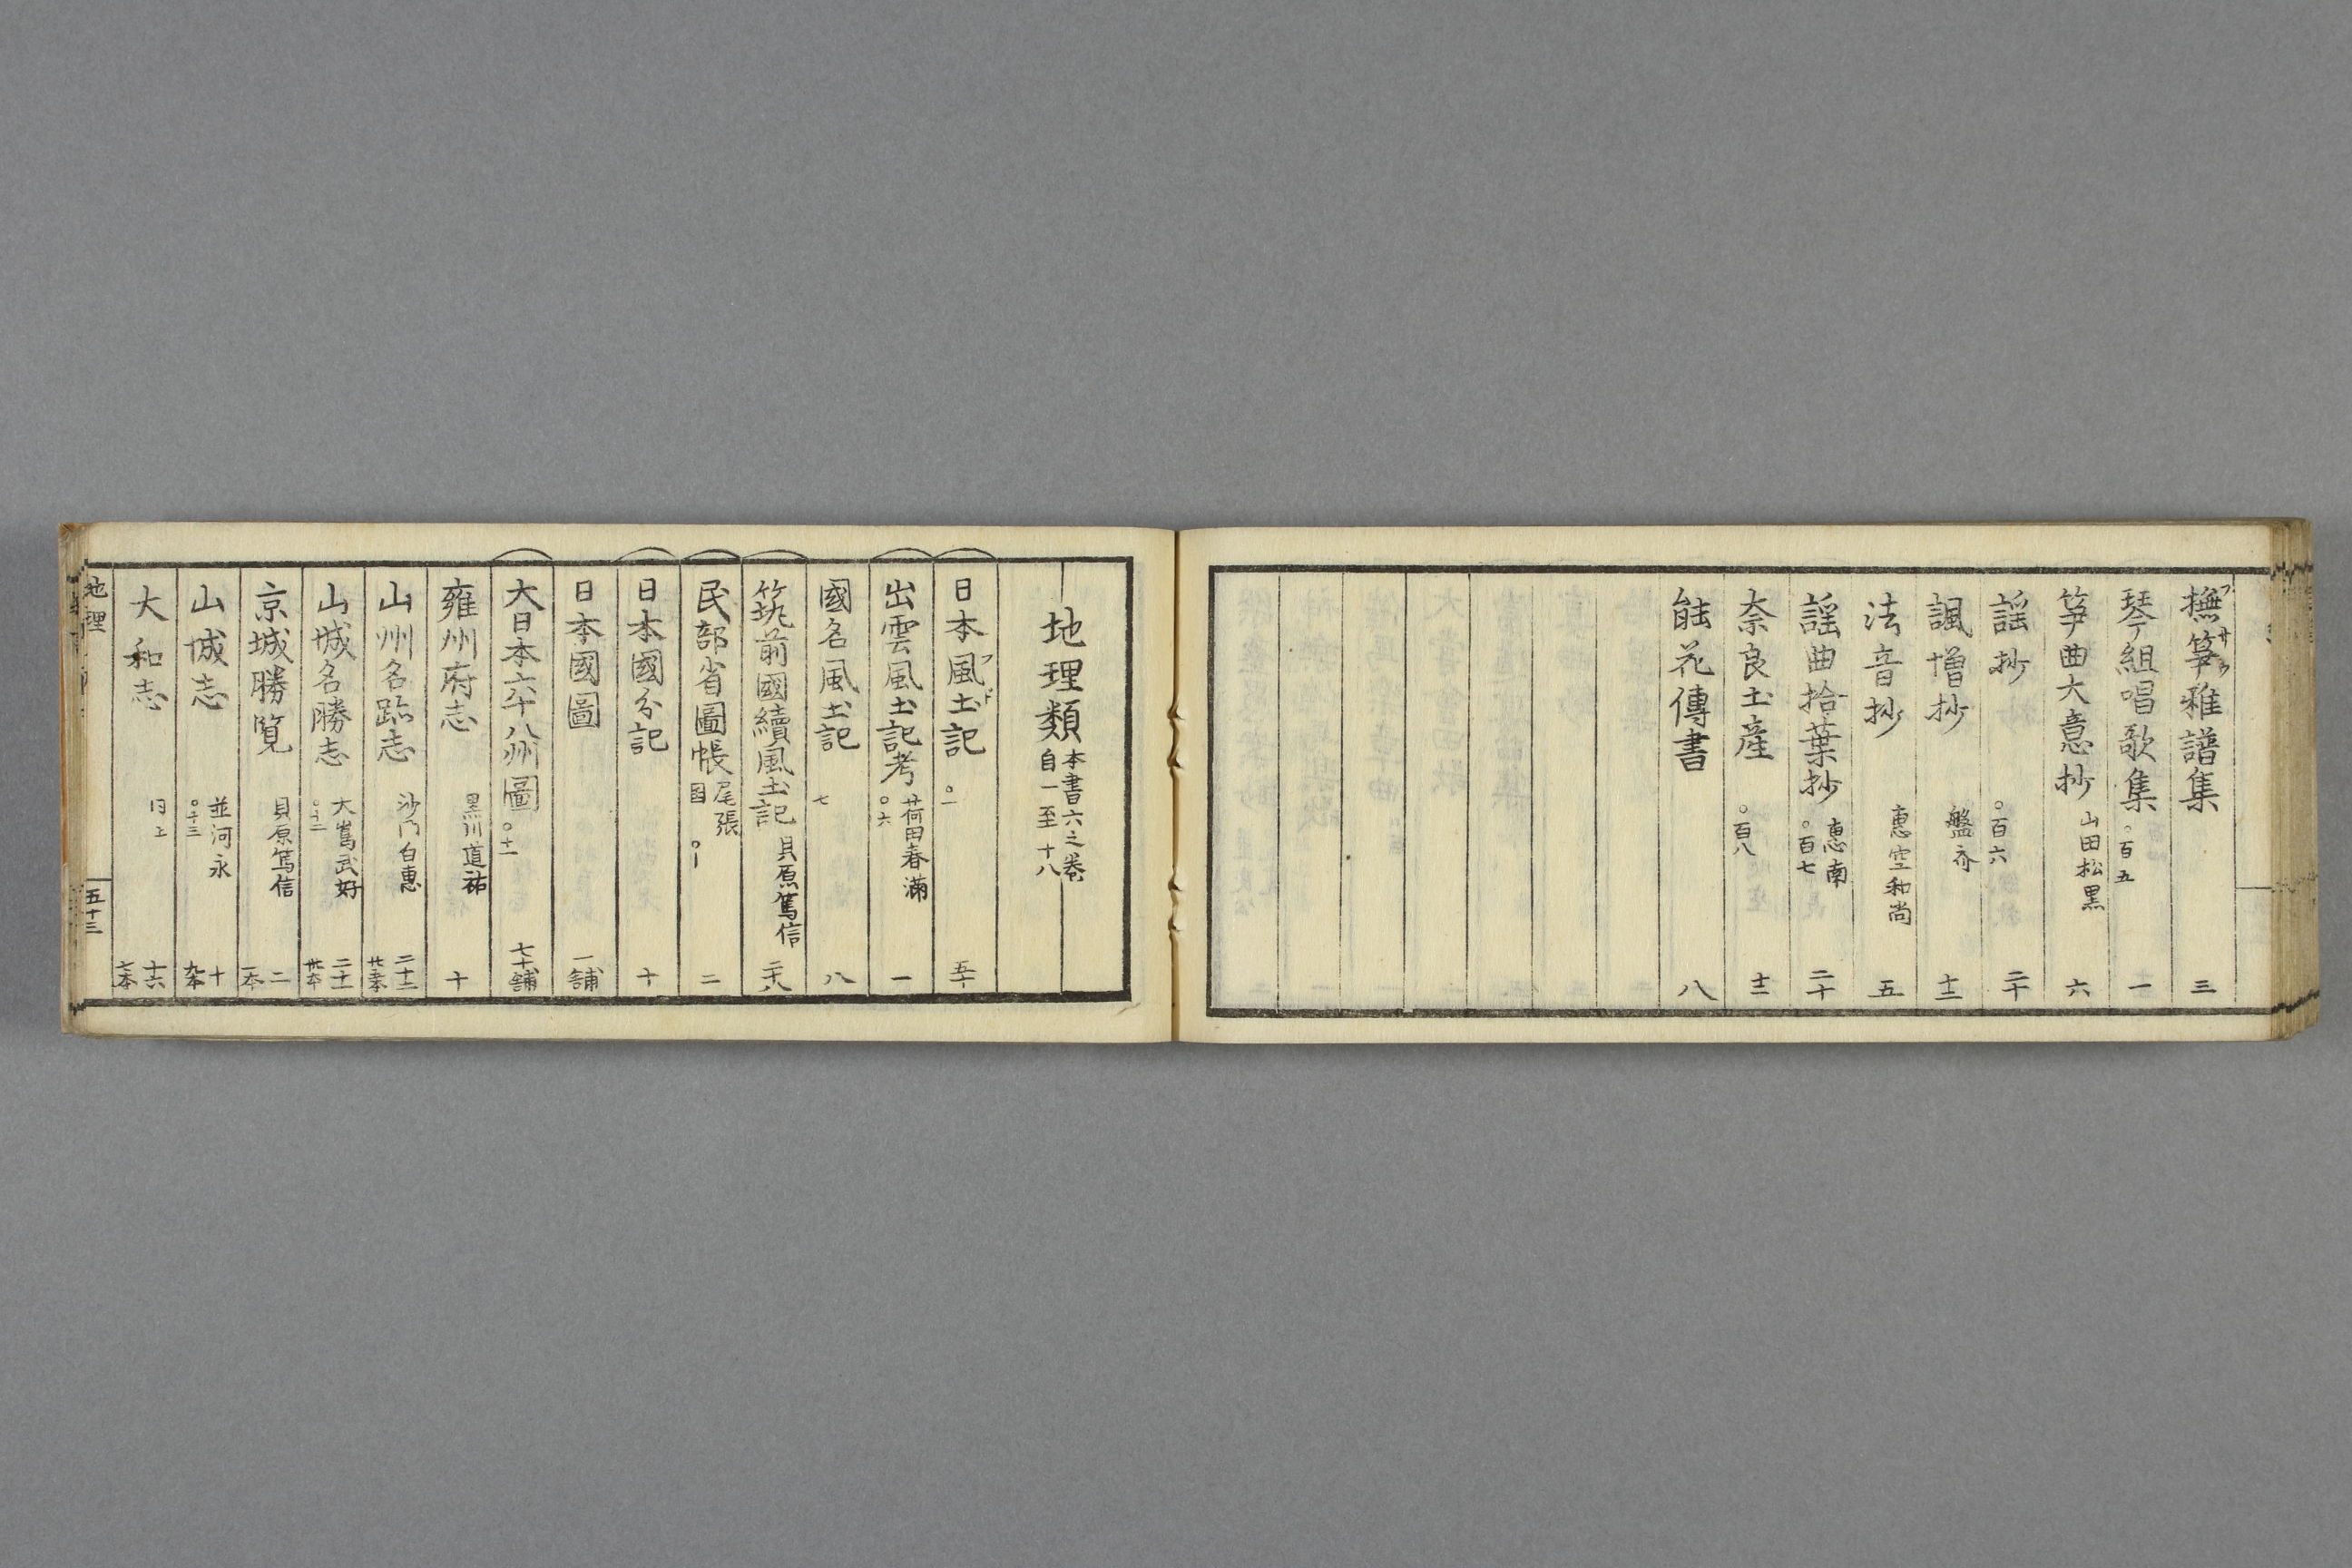 撫箏雅譜集 三
琴組唱歌集 〇百五 一
箏曲大意抄 山田松黒 六
謡抄 〇百六 二十
諷増抄 盤斎 十二
法音抄 恵空和尚 五
謡曲拾葉抄 恵南 〇百七 二十
奈良土産 〇百八 十二
能花傳書 八
地理類 本書六之巻 自一至十八
日本風土記 〇一 五十
出雲風土記考 荷田春満 〇六 一
國名風土記 七 八
筑前國續風土記 貝原篤信 二十八
民部省圖帳 尾張国 二
日本國分記 十
日本國圖 一舗
大日本六十八州圖 〇十一 七十舗
雍州府志 黒川道祐 十
山州名跡志 沙門白恵 二十二
山城名勝志 大嶌武好 二十一
京城勝覧 貝原篤信 二 一本
山城志 並河永 〇十三 十
大和志 同上 十六
地理
五十三